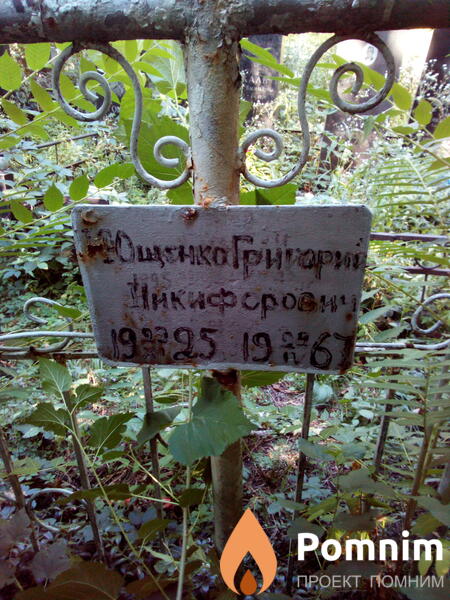 Ющенко Григорий
Никифорович
1925 1967
Pomnim
ПРОЕКТ ПОМНИМ